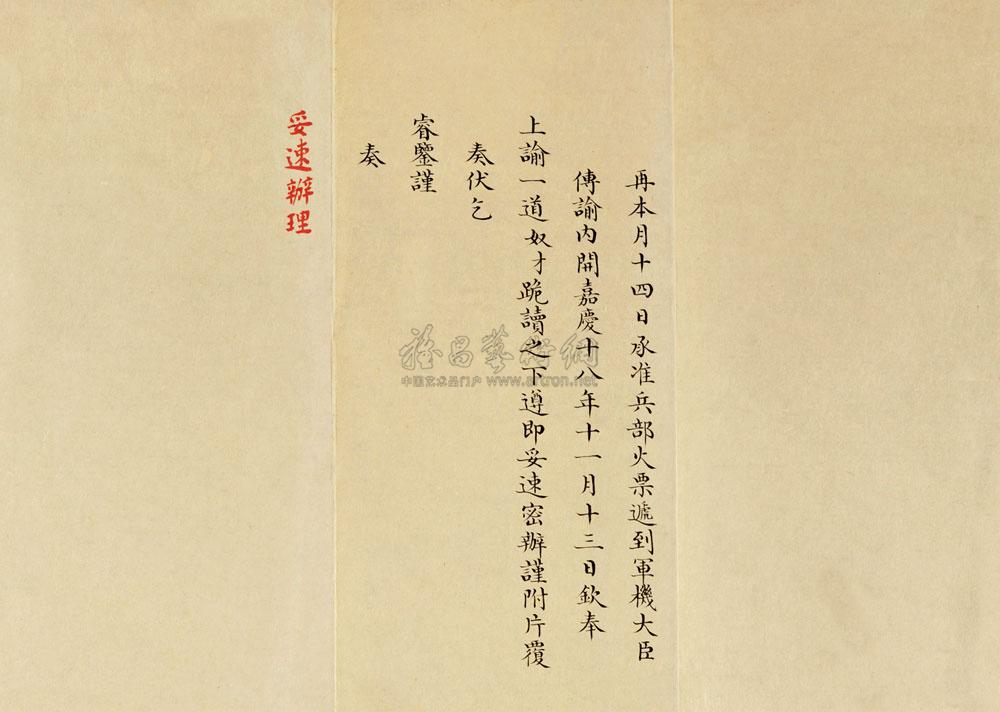 再本月十四日承准兵部火票遞到軍機大臣
傳諭內開嘉慶十八年十一月十三日欽奉
上諭一道奴才跪讀之下遵即妥速密辦謹附片覆
奏伏乞
睿鑒謹
奏
妥速辦理
雅昌藝術網
中国艺术品门户 www.artron.net